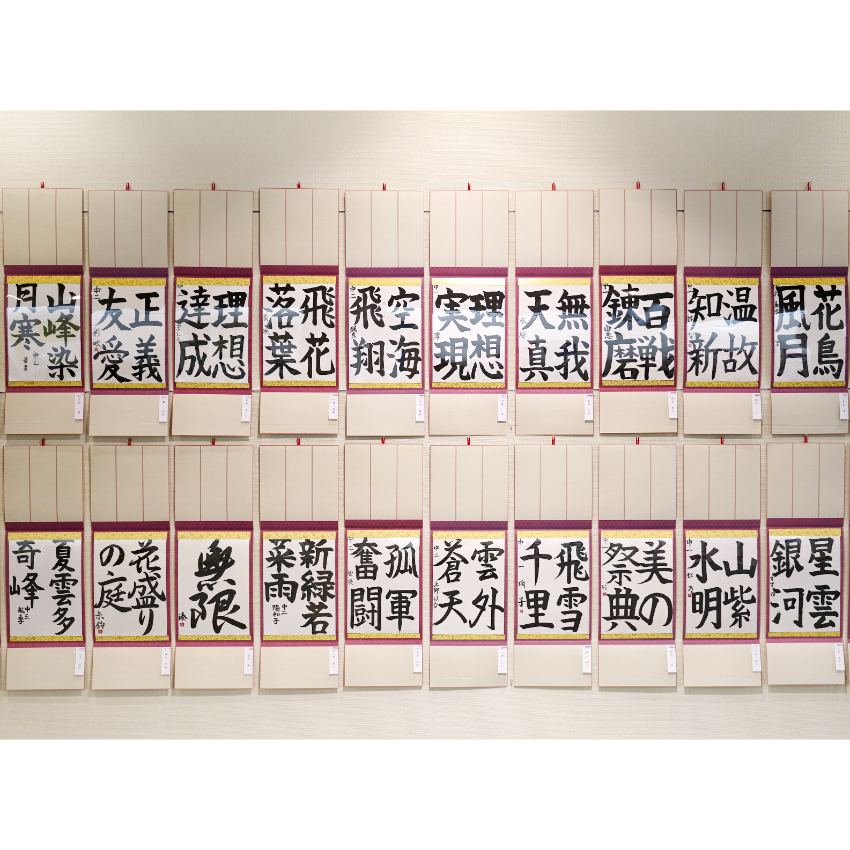 花鳥
風月
温故
知新
百戦
錬磨
無我
天真
理想
実現
空海
飛翔
中二
飛花
落葉
理想
達成
正義
友愛
中二
山峰染
月寒
中一
星雲
銀河
山紫
水明
中一
美の
祭典
飛雪
千里
中一
雲外
蒼天
中二
孤軍
奮闘
新緑若
葉雨
中二
陽和子
無限
花盛り
の庭
夏雲多
奇峰
中三